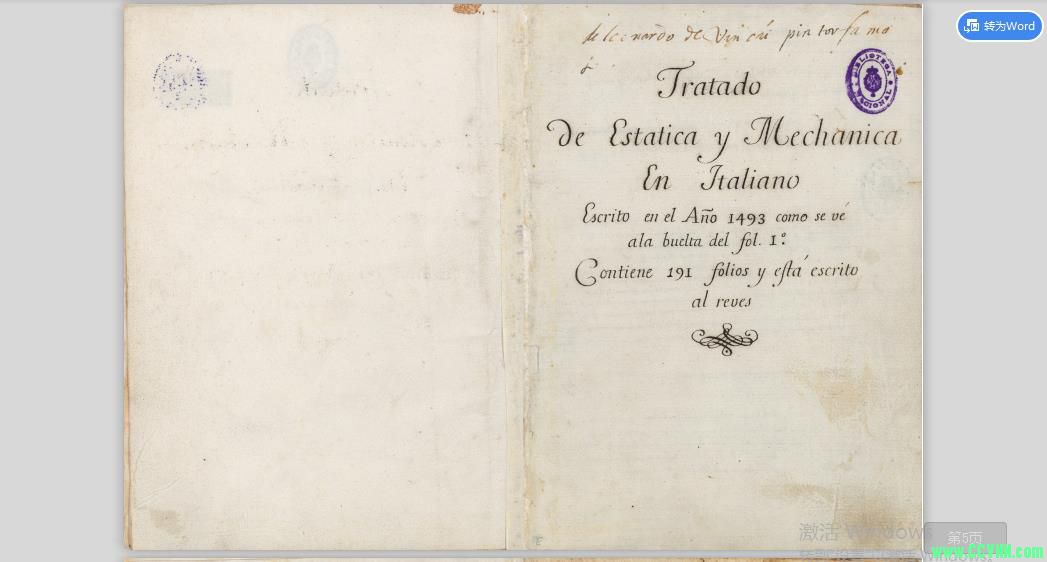 de leonardo de Vinci pintor famo
Tratado
De Estatica y Mechanica
En Italiano
Escrito en el Año 1493 como se vé
ala buelta del fol. 1º
Contiene 191 folios y está escrito
al reves
BIBLIOTECA NACIONAL
转为Word
激活 Windows
第5页